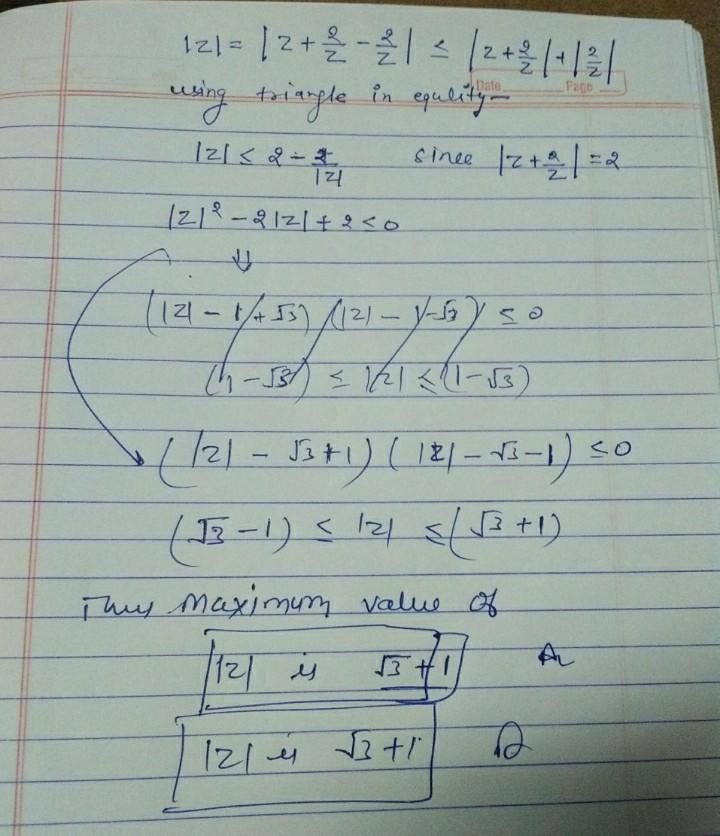 |z| = |z + 2/z - 2/z| ≤ |z + 2/z| + |2/z|
Date Page
using triangle in equlity-
|z| ≤ 2 - 2/|z| since |z + 2/z| = 2
|z|² - 2|z| + 2 < 0
⇓
(|z| - 1 + √3) (|z| - 1 - √3) ≤ 0
(1 - √3) ≤ |z| ≤ (1 - √3)
(|z| - √3 + 1) (|z| - √3 - 1) ≤ 0
(√3 - 1) ≤ |z| ≤ (√3 + 1)
Thus Maximum value of
|z| is √3 + 1
|z| is √3 + 1